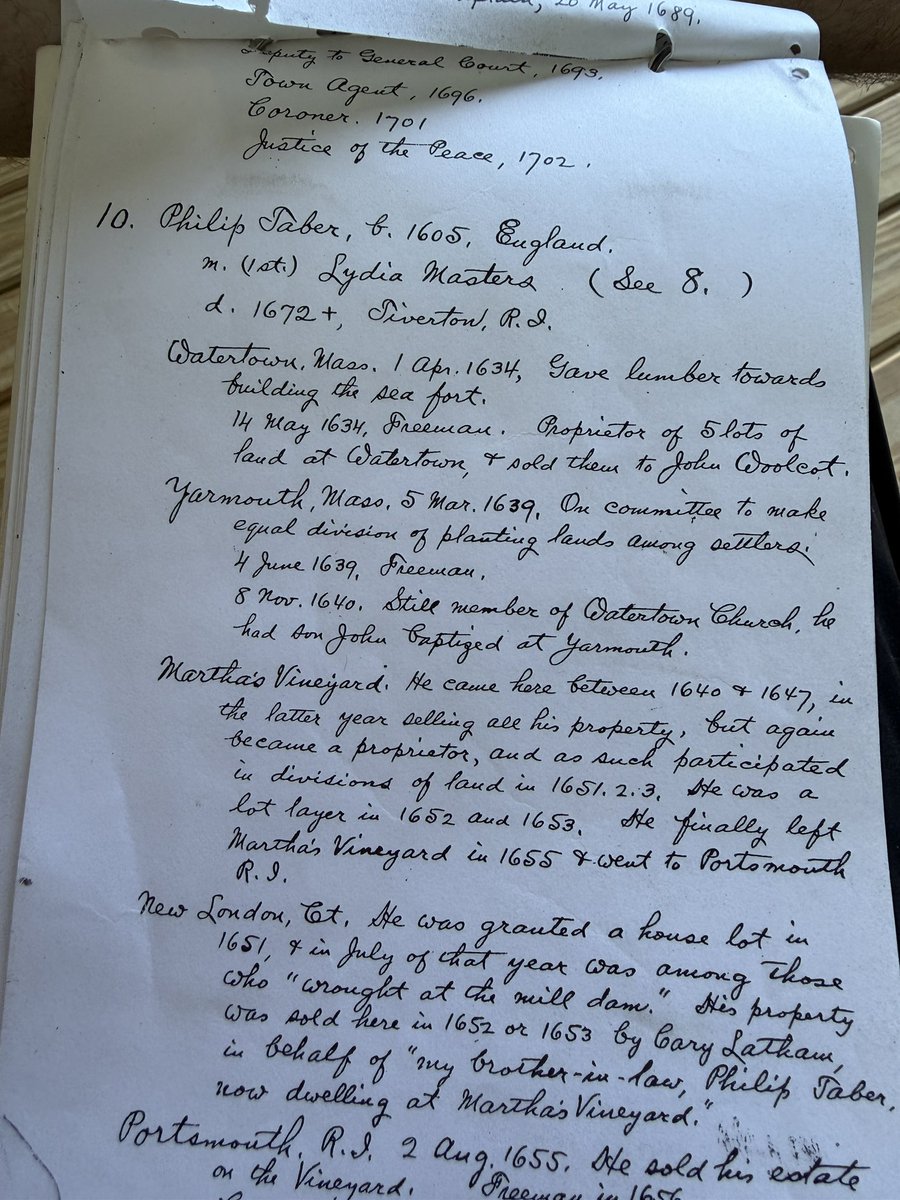 20 May 1689.
Deputy to General Court, 1693.
Town Agent, 1696.
Coroner. 1701
Justice of the Peace, 1702.
10. Philip Taber, b. 1605, England.
m. (1st.) Lydia Masters (See 8. )
d. 1672+, Tiverton, R.I.
Watertown, Mass. 1 Apr. 1634, Gave lumber towards
building the sea fort.
14 May 1634, Freeman. Proprietor of 5 lots of
land at Watertown, & sold them to John Woolcot.
Yarmouth, Mass. 5 Mar. 1639, On committee to make
equal division of planting lands among settlers.
4 June 1639, Freeman.
8 Nov. 1640. Still member of Watertown Church, he
had son John baptized at Yarmouth.
Martha's Vineyard. He came here between 1640 & 1647, in
the latter year selling all his property, but again
became a proprietor, and as such participated
in divisions of land in 1651.2.3. He was a
lot layer in 1652 and 1653. He finally left
Martha's Vineyard in 1655 & went to Portsmouth
R.I.
New London, Ct. He was granted a house lot in
1651, & in July of that year was among those
who "wrought at the mill dam." His property
was sold here in 1652 or 1653 by Cary Latham,
in behalf of "my brother-in-law, Philip Taber,
now dwelling at Martha's Vineyard."
Portsmouth, R.I. 2 Aug. 1655. He sold his estate
on the Vineyard. Freeman in 1656